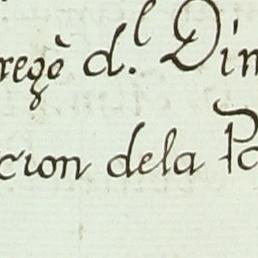 regō d.l Din
cion dela Pa